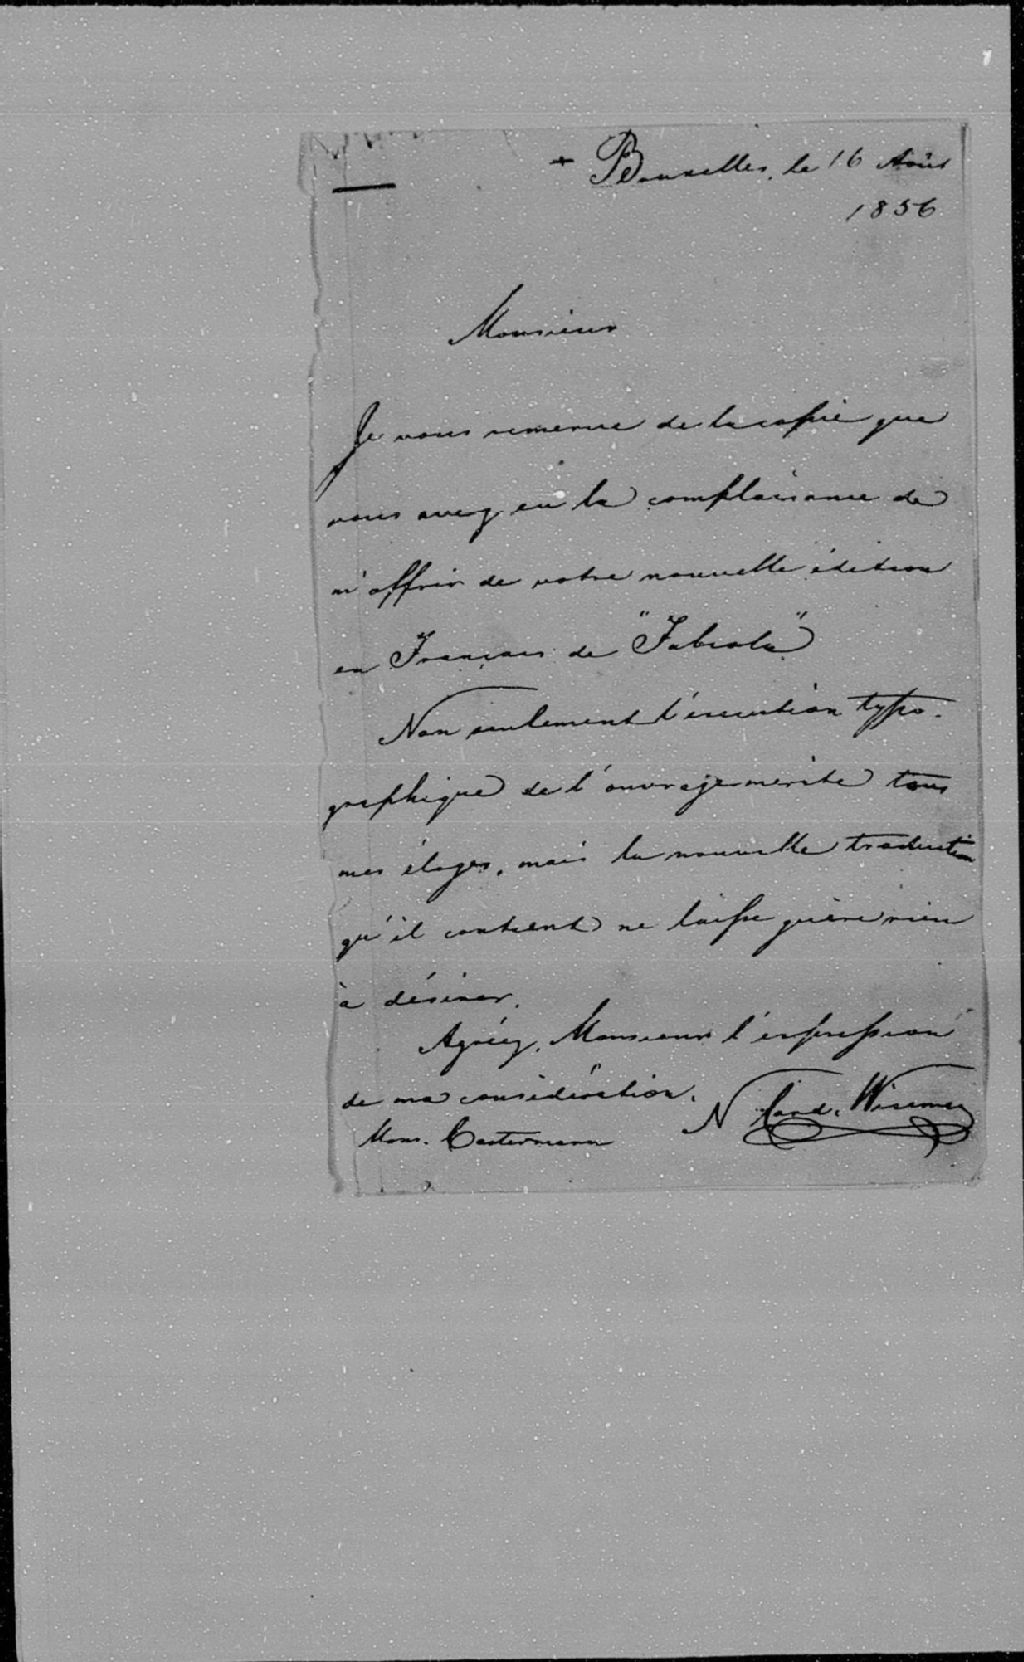 + Bruxelles, le 16 Août
1856
Monsieur
Je vous remercie de la copie que
vous avez eu la complaisance de
m'offrir de votre nouvelle édition
en Français de "Fabiola"
Non seulement l'execution typo-
graphique de l'ouvrage merite tous
mes éloges, mais la nouvelle traduction
qu'il contient ne laisse guère rien
à désirer.
Agréez, Monsieur l'expression
de ma considération.
N Card. Wiseman
Mons. Castermann